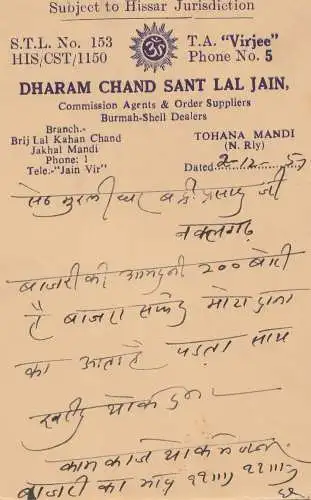 Subject to Hissar Jurisdiction
S.T.L. No. 153
HIS/CST/1150
ॐ
T.A. "Virjee"
Phone No. 5
DHARAM CHAND SANT LAL JAIN,
Commission Agents & Order Suppliers
Burmah-Shell Dealers
Branch.-
Brij Lal Kahan Chand
Jakhal Mandi
Phone: 1
Tele:-"Jain Vir"
TOHANA MANDI
(N. Rly)
Dated 2-12-57
सेठ मुरली धर बद्री प्रसाद जी
बाजरी की आमदनी 200 बोरी
है बाजरा सफेद मोटा दाना
का आता है पड़ता साथ
खरीद
काम काज
बाजरी का भाव